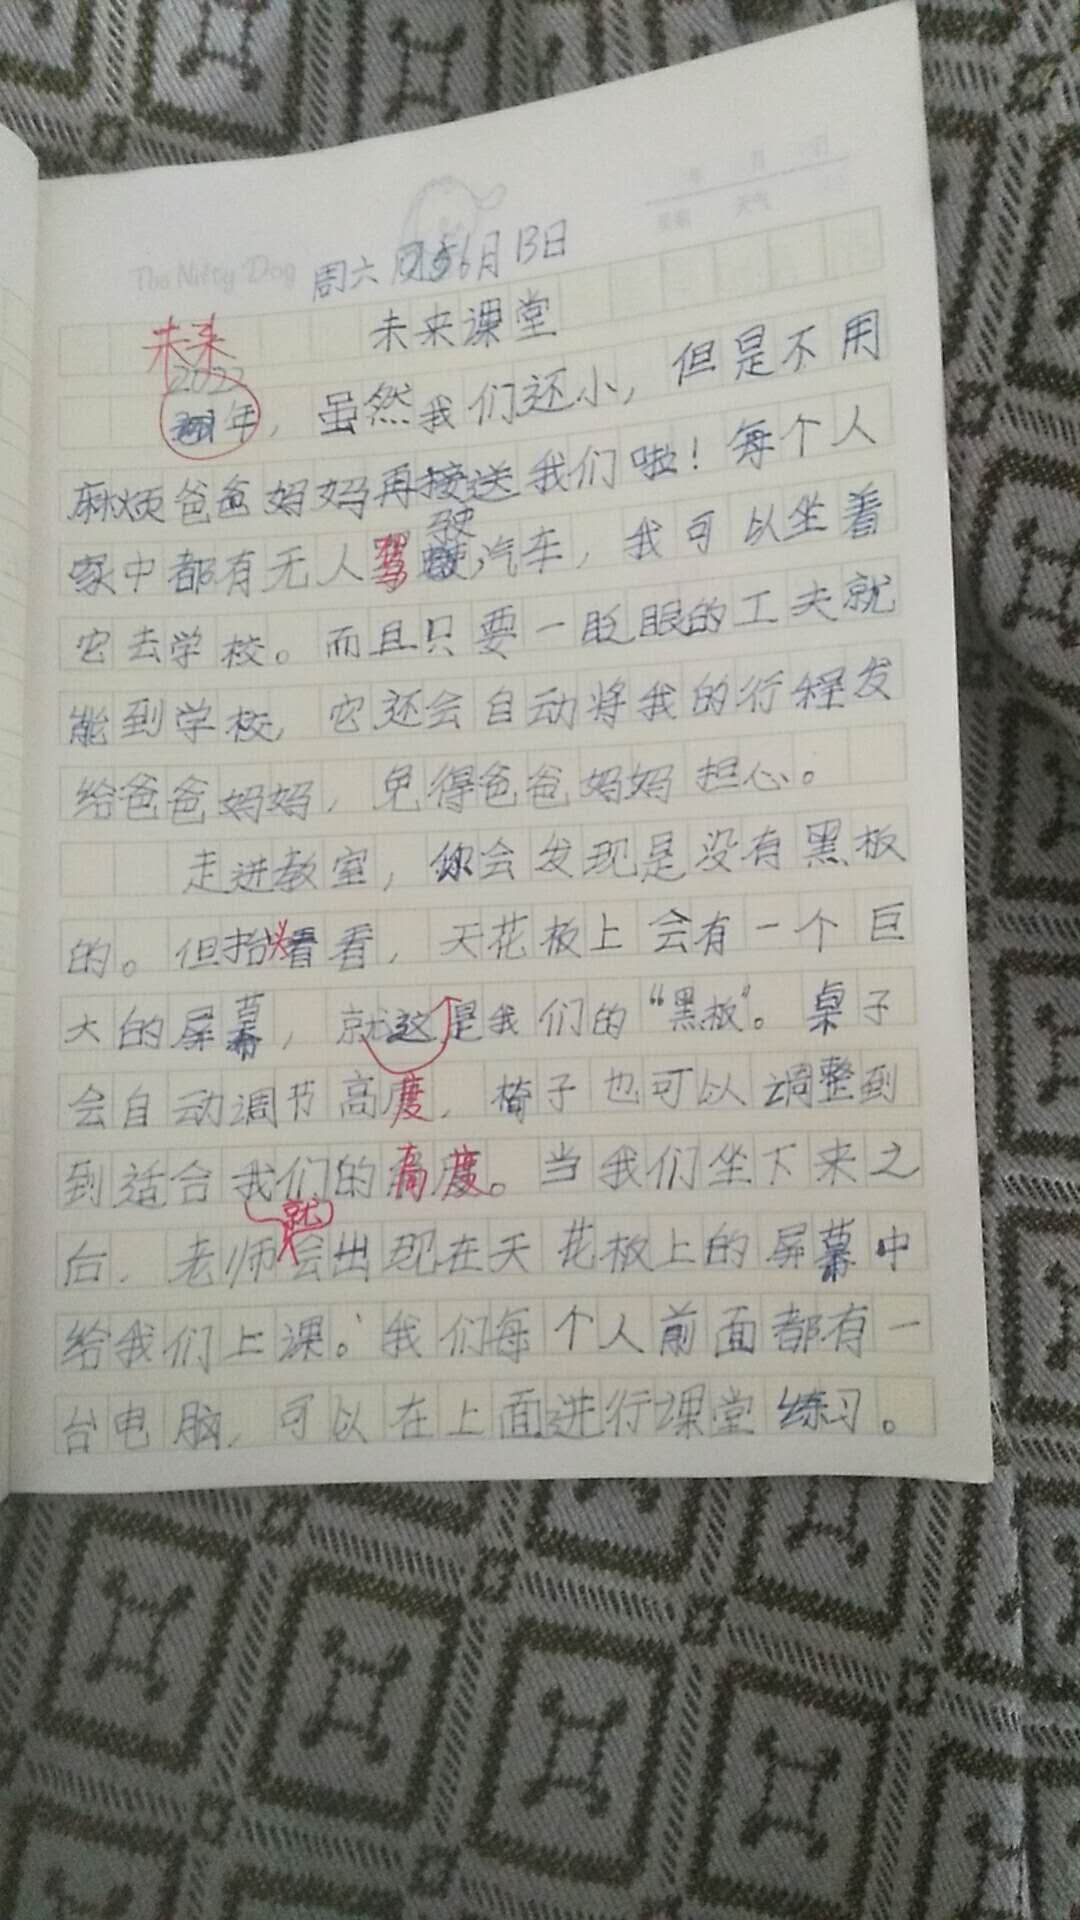 The Nifty Dog
周六 6月13日
未来课堂
未来
2022
年，虽然我们还小，但是不用
麻烦爸爸妈妈再接送我们啦！每个人
家中都有无人驾驶汽车，我可以坐着
它去学校。而且只要一眨眼的工夫就
能到学校，它还会自动将我的行程发
给爸爸妈妈，免得爸爸妈妈担心。
走进教室，你会发现是没有黑板
的。但抬头看看，天花板上会有一个巨
大的屏幕，就这是我们的“黑板”。桌子
会自动调节高度，椅子也可以调整到
到适合我们的高度。当我们坐下来之
后，老师就会出现在天花板上的屏幕中
给我们上课。我们每个人前面都有一
台电脑，可以在上面进行课堂练习。